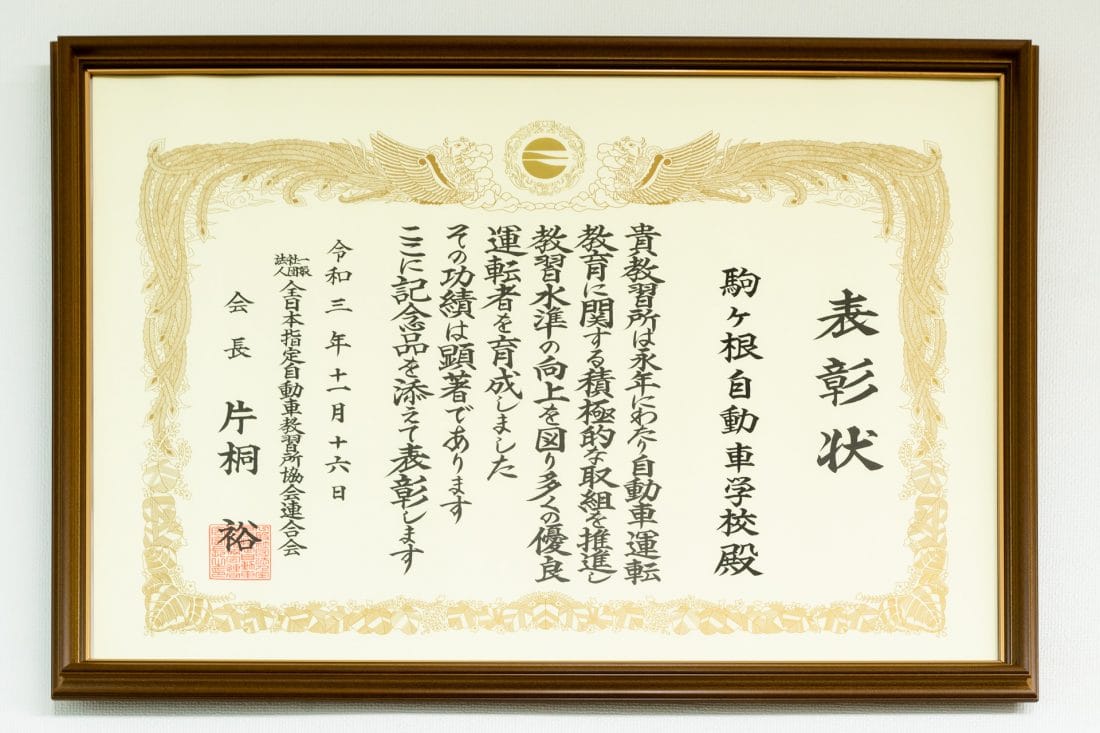 表彰状
駒ヶ根自動車学校殿
貴教習所は永年にわたり自動車運転
教育に関する積極的な取組を推進し
教習水準の向上を図り多くの優良
運転者を育成しました
その功績は顕著であります
ここに記念品を添えて表彰します
令和三年十一月十六日
一般社団法人全日本指定自動車教習所協会連合会
会長 片桐裕